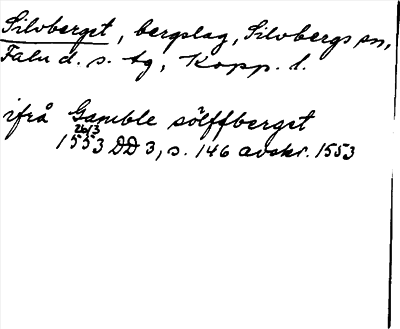 Silvberget, bergslag, Silvbergs sn,
Falu d. s. tg, Kopp. l.
ifrå Gamble sölffberget
26/3
1553 DD 3, s. 146 avskr. 1553